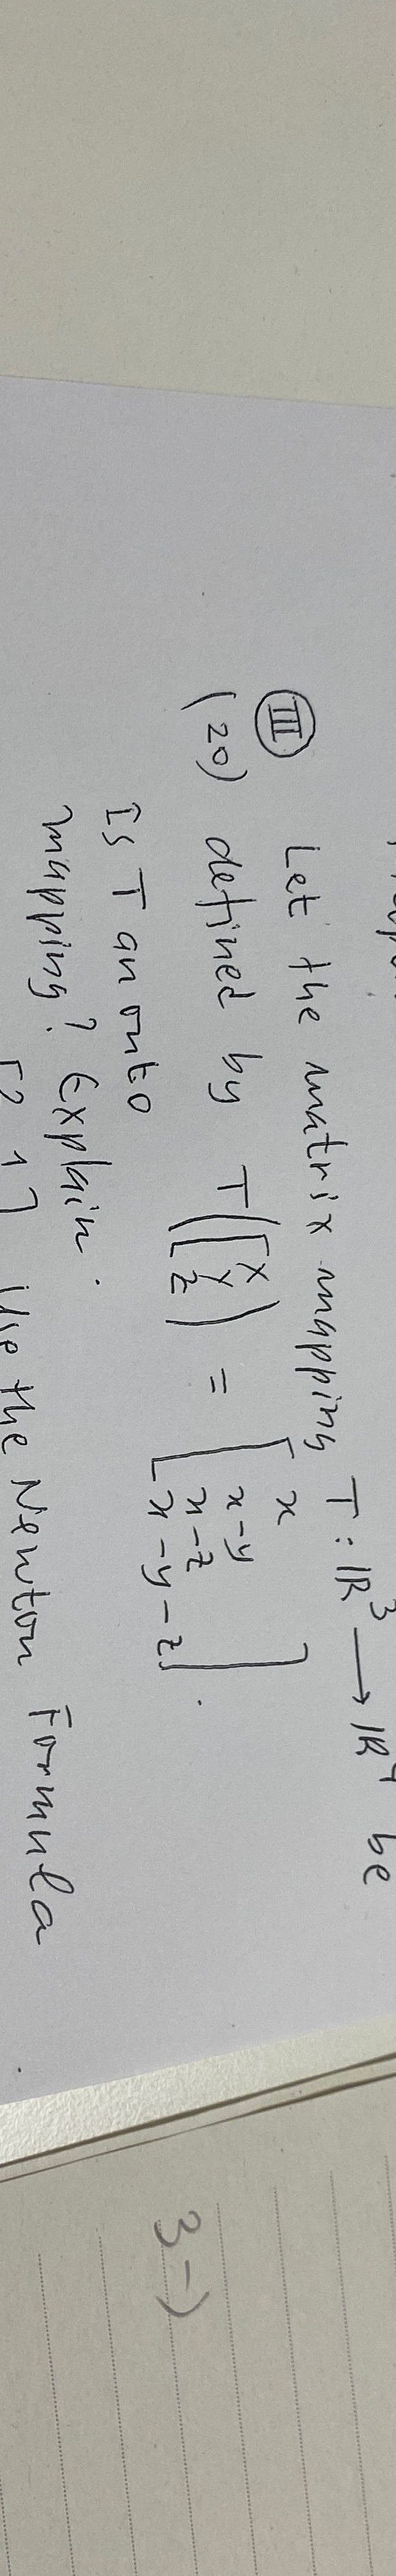 III Let the matrix mapping T : ℝ³ ⟶ ℝ⁴ be
(20) defined by T([x y z]) = [x
x-y
x-z
x-y-z].
Is T an onto
mapping? Explain.
Use the Newton Formula
3-)